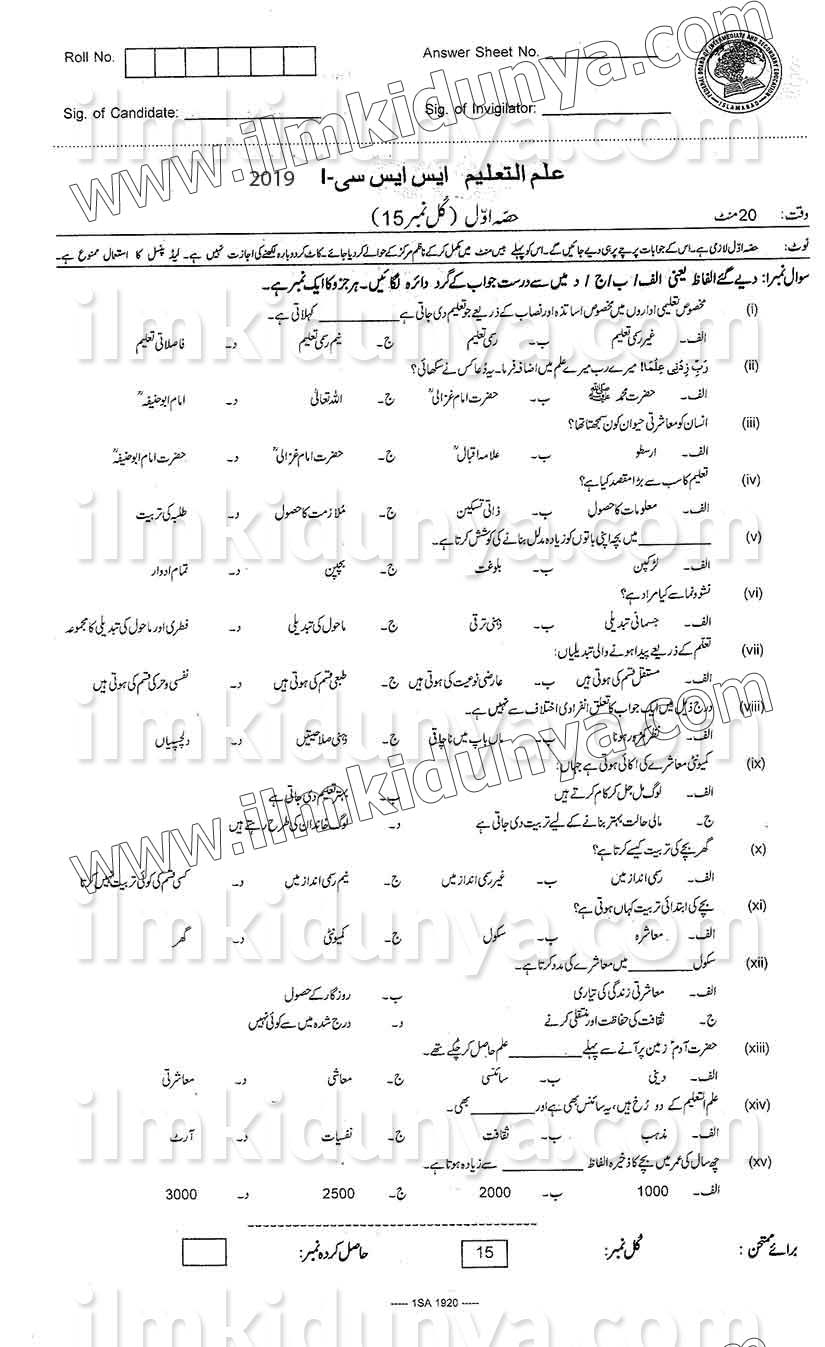 Roll No. Answer Sheet No.
FEDERAL BOARD OF INTERMEDIATE AND SECONDARY EDUCATION ISLAMABAD
Sig. of Candidate: Sig. of Invigilator:
علم التعلیم ایس ایس سی-I 2019
وقت: 20 منٹ حصہ اوّل (کُل نمبر 15)
نوٹ: حصہ اوّل لازمی ہے۔ اس کے جوابات پرچے پر ہی دیے جائیں گے۔ اس کو پہلے بیس منٹ میں مکمل کر کے ناظم مرکز کے حوالے کر دیا جائے۔ کاٹ کر دوبارہ لکھنے کی اجازت نہیں ہے۔ لیڈ پنسل کا استعمال ممنوع ہے۔
سوال نمبر ا: دیے گئے الفاظ یعنی الف / ب / ج / د میں سے درست جواب کے گرد دائرہ لگائیں۔ ہر جزو کا ایک نمبر ہے۔
(i) مخصوص تعلیمی اداروں میں مخصوص اساتذہ اور نصاب کے ذریعے جو تعلیم دی جاتی ہے ________ کہلاتی ہے۔
الف۔ غیر رسمی تعلیم ب۔ رسمی تعلیم ج۔ نیم رسمی تعلیم د۔ فاصلاتی تعلیم
(ii) رَبِّ زِدْنِی عِلْمًا! میرے رب میرے علم میں اضافہ فرما۔ یہ دُعا کس نے سکھائی؟
الف۔ حضرت محمد ﷺ ب۔ حضرت امام غزالیؒ ج۔ اللہ تعالیٰ د۔ امام ابو حنیفہؒ
(iii) انسان کو معاشرتی حیوان کون سمجھتا تھا؟
الف۔ ارسطو ب۔ علامہ اقبالؒ ج۔ حضرت امام غزالیؒ د۔ حضرت امام ابو حنیفہؒ
(iv) تعلیم کا سب سے بڑا مقصد کیا ہے؟
الف۔ معلومات کا حصول ب۔ ذاتی تسکین ج۔ مُلازمت کا حصول د۔ طلبہ کی تربیت
(v) ________ میں بچہ اپنی باتوں کو زیادہ مدلل بنانے کی کوشش کرتا ہے۔
الف۔ لڑکپن ب۔ بلوغت ج۔ بچپن د۔ تمام ادوار
(vi) نشوونما سے کیا مراد ہے؟
الف۔ جسمانی تبدیلی ب۔ ذہنی ترقی ج۔ ماحول کی تبدیلی د۔ فطری اور ماحول کی تبدیلی کا مجموعہ
(vii) تعلّم کے ذریعے پیدا ہونے والی تبدیلیاں:
الف۔ مستقل قسم کی ہوتی ہیں ب۔ عارضی نوعیت کی ہوتی ہیں ج۔ طبعی قسم کی ہوتی ہیں د۔ نفسی و حرکی قسم کی ہوتی ہیں
(viii) درج ذیل میں ایک جواب کا تعلق انفرادی اختلاف سے نہیں ہے۔
الف۔ نظر کمزور ہونا ب۔ ماں باپ میں ناچاقی ج۔ ذہنی صلاحیتیں د۔ دلچسپیاں
(ix) کمیونٹی معاشرے کی اکائی ہوتی ہے جہاں:
الف۔ لوگ مل جل کر کام کرتے ہیں ب۔ بہتر تعلیم دی جاتی ہے
ج۔ مالی حالت بہتر بنانے کے لیے تربیت دی جاتی ہے د۔ لوگ خاندان کی طرح رہتے ہیں
(x) گھر بچے کی تربیت کیسے کرتا ہے؟
الف۔ رسمی انداز میں ب۔ غیر رسمی انداز میں ج۔ نیم رسمی انداز میں د۔ کسی قسم کی کوئی تربیت نہیں کرتا
(xi) بچے کی ابتدائی تربیت کہاں ہوتی ہے؟
الف۔ معاشرہ ب۔ سکول ج۔ کمیونٹی د۔ گھر
(xii) سکول ________ میں معاشرے کی مدد کرتا ہے۔
الف۔ معاشرتی زندگی کی تیاری ب۔ روزگار کے حصول
ج۔ ثقافت کی حفاظت اور منتقلی کرنے د۔ درج شدہ میں سے کوئی نہیں
(xiii) حضرت آدمؑ زمین پر آنے سے پہلے ________ علم حاصل کر چکے تھے۔
الف۔ دینی ب۔ سائنسی ج۔ معاشی د۔ معاشرتی
(xiv) علم التعلیم کے دو رُخ ہیں، یہ سائنس بھی ہے اور ________ بھی۔
الف۔ مذہب ب۔ ثقافت ج۔ نفسیات د۔ آرٹ
(xv) چھ سال کی عمر میں بچے کا ذخیرہ الفاظ ________ سے زیادہ ہوتا ہے۔
الف۔ 1000 ب۔ 2000 ج۔ 2500 د۔ 3000
برائے ممتحن: کُل نمبر: 15 حاصل کردہ نمبر:
----- 1SA 1920 -----
www.ilmkidunya.com
ilmkidunya.com